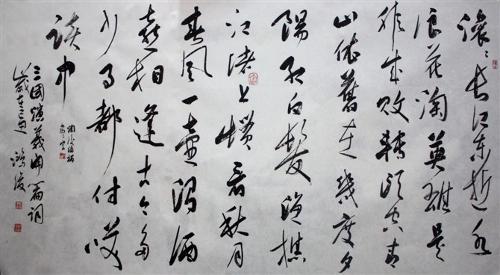 滚滚长江东逝水
浪花淘英雄是
非成败转头空青
山依旧在几度夕
阳红白髮渔樵
江渚上惯看秋月
春风一壶浊酒
喜相逢古今多
少事都付笑
谈中
三国演义开篇词